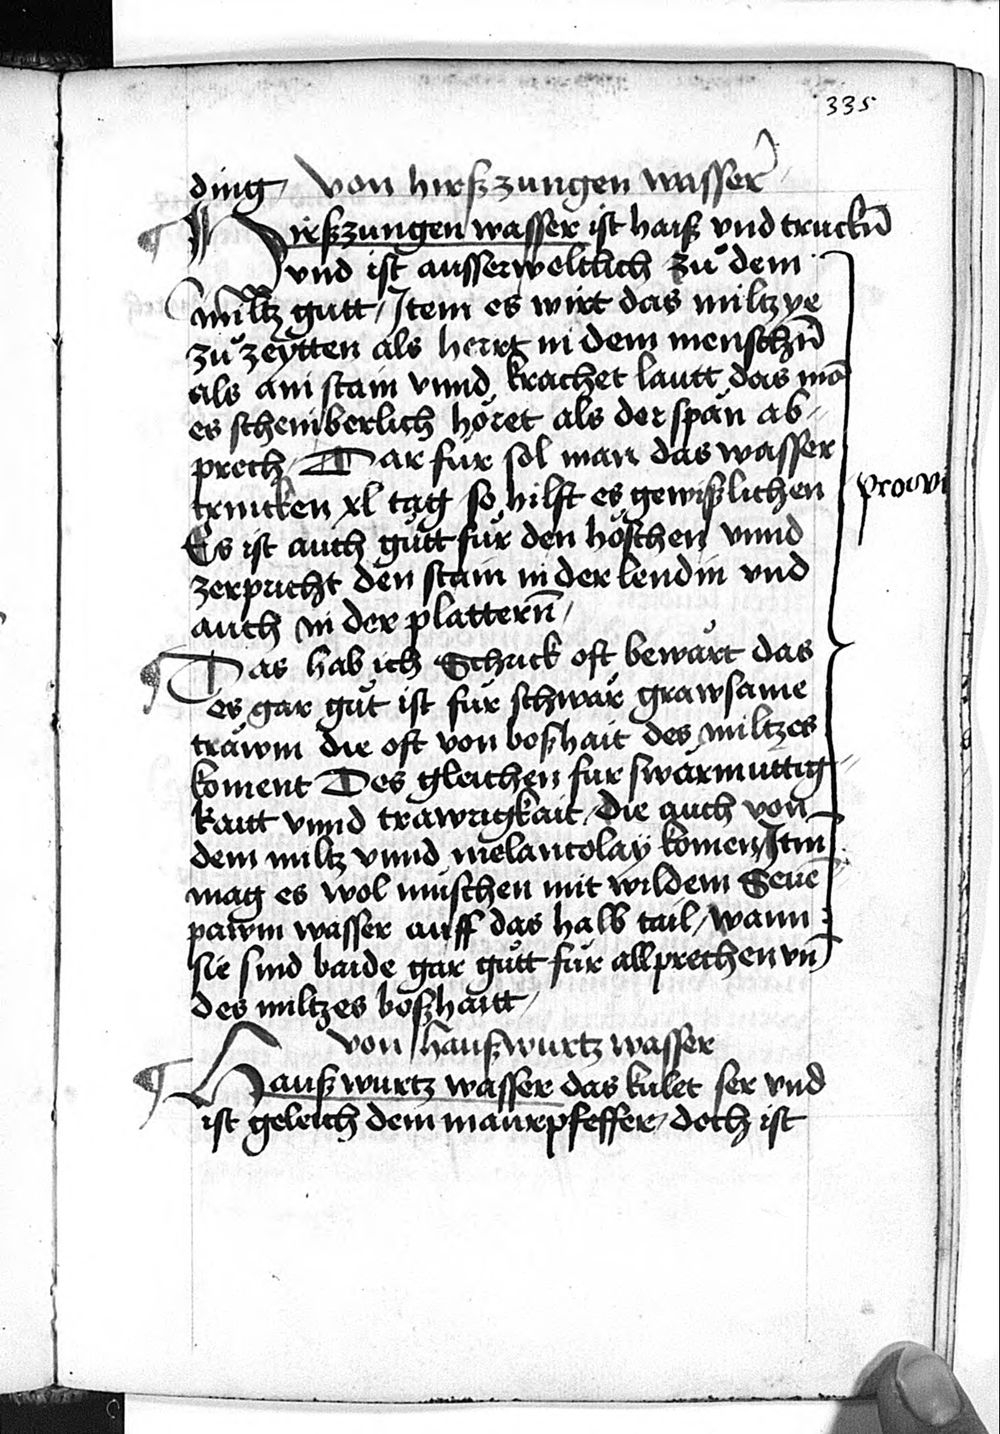 335
ding von hirßzungen wasser
Hirßzungen wasser ist haiß vnd truckn̄
vnd ist ausserweltlich zů dem
miltz gutt / Item es wirt das miltz ye
zů zeytten als herrt in dem menschn̄
als ain stain vnnd krachet lautt das mā
es scheinberlich höret als der spän ab
prech / Dar für sol man das wasser
trincken xl tag so hilft es gewißlichen
Es ist auch gůtt für den höschen vnnd
zerpricht den stain in der lendin vnd
auch in der plattern̄ /
Das hab ich Schrick oft bewärt das
es gar gůt ist für schwär grawsame
träwm die oft von boßhait des miltzes
koment Des gleichen für swarmuttig
kaitt vnnd trawrigkait / die auch von
dem miltz vnnd melancolay komen / Itm
mag es wol müschen mit wildem Seuē
pawm wasser auff das halb tail / wann
sie sind baide gar gůtt für allprechen vn̄
des miltzes boßhaitt /
von haußwurtz wasser
Haußwurtz wasser das kület ser vnd
ist geleich dem maurpfeffer / doch ist